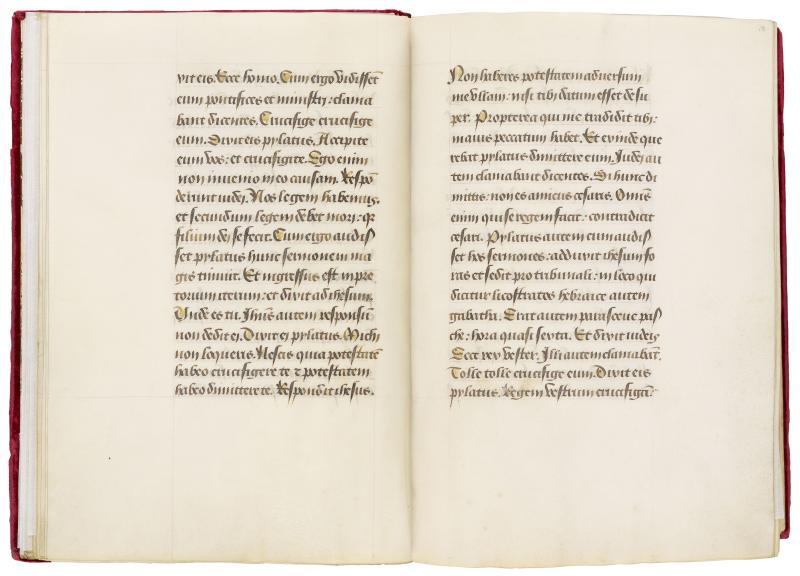 xit eis. Ecce homo. Cum ergo vidisset
eum pontifices et ministri: clama
bant dicentes. Crucifige crucifige
eum. Dixit eis pylatus. Accipite
eum vos: et crucifigite. Ego enim
non invenio in eo causam. Respō
derunt iudei. Nos legem habemus.
et secundum legem debet mori: qz
filium dei se fecit. Cum ergo audis
set pylatus hunc sermonem ma
gis timuit. Et ingressus est in pre
torium iterum: et dixit ad ihesum.
Unde es tu. Ihūs autem responsū
non dedit ei. Dixit ei pylatus. Michi
non loqueris. Nescis quia potestatē
habeo crucifigere te et potestatem
habeo dimittere te. Respondit ihesus.
Non haberes potestatem adversum
me ullam: nisi tibi datum esset desu
per. Propterea qui me tradidit tibi:
maius peccatum habet. Et exinde que
rebat pylatus dimittere eum. Iudei au
tem clamabant dicentes. Si hunc di
mittis: non es amicus cesaris. Omīs
enim qui se regem facit: contradicit
cesari. Pylatus autem cum audis
set hos sermones: adduxit ihesum fo
ras et sedit pro tribunali: in loco qui
dicitur licostratos hebraice autem
gabatha. Erat autem parasceue pas
che: hora quasi sexta. Et dixit iudeis
Ecce rex vester. Illi autem clamabāt.
Tolle tolle crucifige eum. Dixit eis
pylatus. Regem vestrum crucifigā?